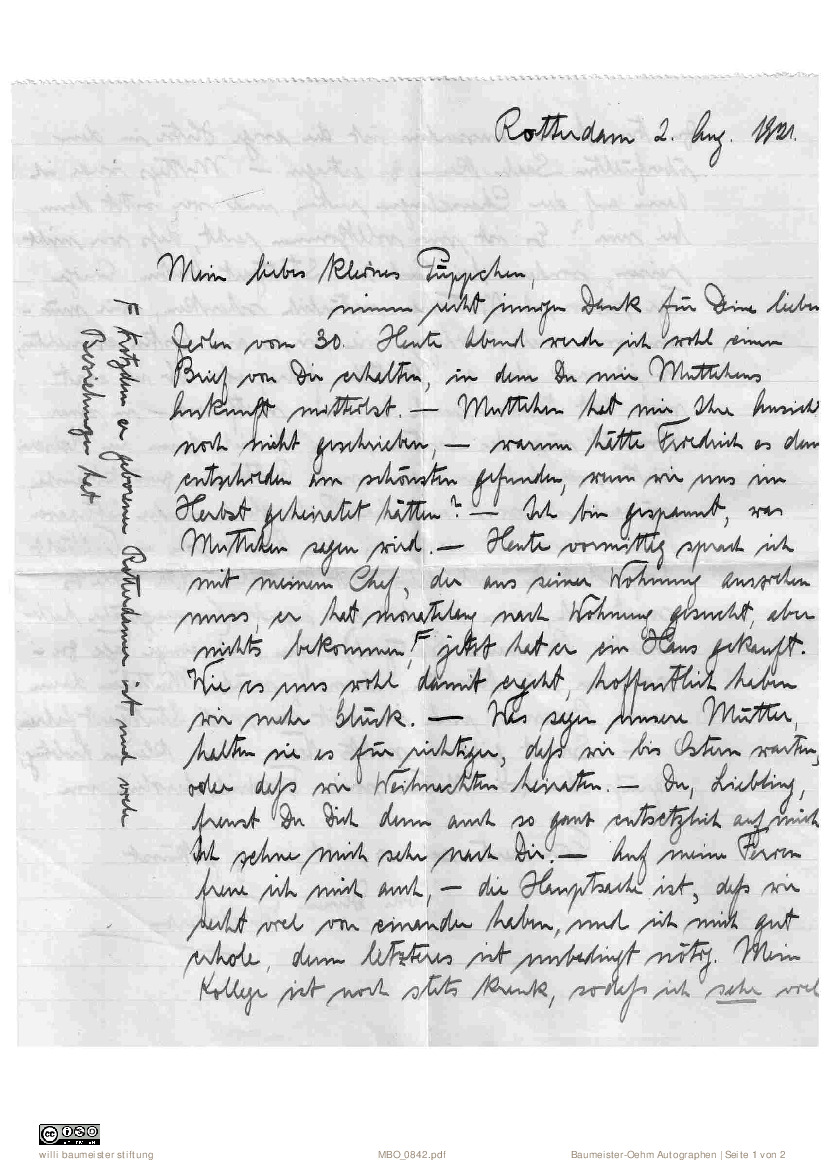 Rotterdam 2. Aug. 1921.
Mein liebes kleines Püppchen,
nimm recht innigen Dank für Deine lieben
Zeilen vom 30. Heute Abend werde ich wohl einen
Brief von Dir erhalten, in dem Du mir Muttchens
Auskunft mitteilst. — Muttchen hat mir Ihre Ansicht
noch nicht geschrieben, — warum hätte Friedrich es denn
entschieden am schönsten gefunden, wenn wir uns im
Herbst geheiratet hätten? — Ich bin gespannt, was
Muttchen sagen wird. — Heute vormittag sprach ich
mit meinem Chef, der aus seiner Wohnung ausziehen
muss, er hat monatelang nach Wohnung gesucht, aber
nichts bekommen, F jetzt hat er ein Haus gekauft.
Wie es uns wohl damit ergeht, hoffentlich haben
wir mehr Glück. — Was sagen unsere Mütter,
halten sie es für richtiger, daß wir bis Ostern warten,
oder daß wir Weihnachten heiraten. — Du, Liebling,
freust Du Dich denn auch so ganz entsetzlich auf mich
Ich sehne mich sehr nach Dir. — Auf meine Ferien
freue ich mich auch, — die Hauptsache ist, daß wir
recht viel von einander haben, und ich mich gut
erhole, denn letzteres ist unbedingt nötig. Mein
Kollege ist noch stets krank, sodaß ich sehr viel
F trotzdem er geborener Rotterdamer ist und viele
Beziehungen hat
willi baumeister stiftung
MBO_0842.pdf
Baumeister-Oehm Autographen | Seite 1 von 2